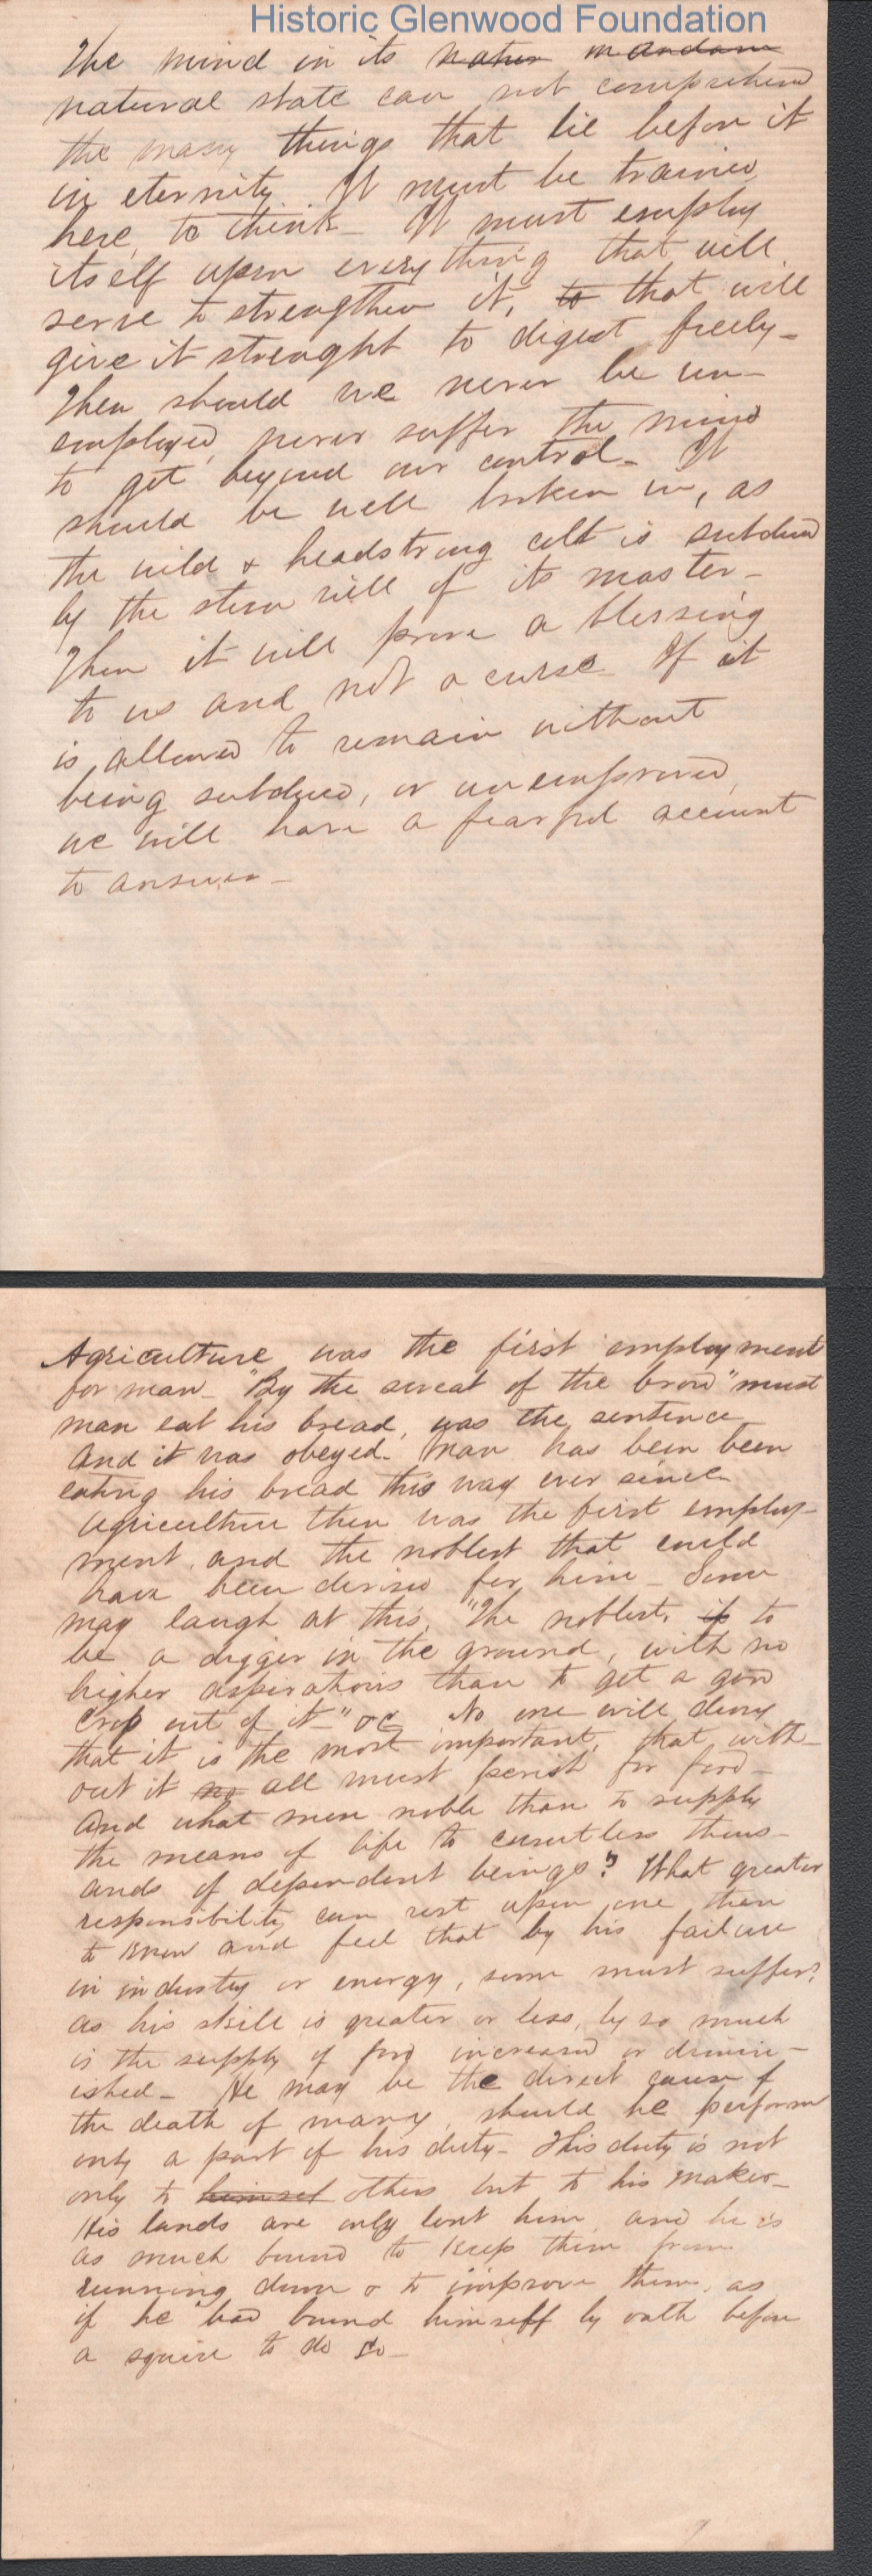 Historic Glenwood Foundation
The mind in its
natural state can not comprehend
the many things that lie before it
in eternity. It must be trained
here, to think - It must employ
itself upon every thing that will
serve to strengthen it, to that will
give it strenght to digest freely -
Then should we never be un-
employed, never suffer the mind
to get beyond our control - It
should be well broken in, as
the wild & headstrong colt is subdued
by the stern will of its master -
Then it will prove a blessing
to us and not a curse If it
is allowed to remain without
being subdued, or unimproved,
we will have a fearful account
to answer -
Agriculture was the first employment
for man - "By the sweat of the brow" must
man eat his bread, was the sentence
And it was obeyed. Man has been been
eating his bread this way ever since
Agriculture then was the first employ-
ment, and the noblest that could
have been devised for him - Some
may laugh at this, "The noblest, is to
be a digger in the ground, with no
higher aspirations than to get a good
crop out of it -" &c No one will deny
that it is the most important, that with-
out it no all must perish for food -
And what more noble than to supply
the means of life to countless thous-
ands of dependent beings? What greater
responsibility can rest upon one than
to know and feel that by his failure
in industry or energy, some must suffer?
as his skill is greater or less, by so much
is the supply of food increased or dimin-
ished - He may be the direct cause of
the death of many, should he perform
only a part of his duty - His duty is not
only to himself others but to his maker -
His lands are only lent him, and he is
as much bound to keep them from
running down & to improve them, as
if he had bound himself by oath before
a squire to do so -